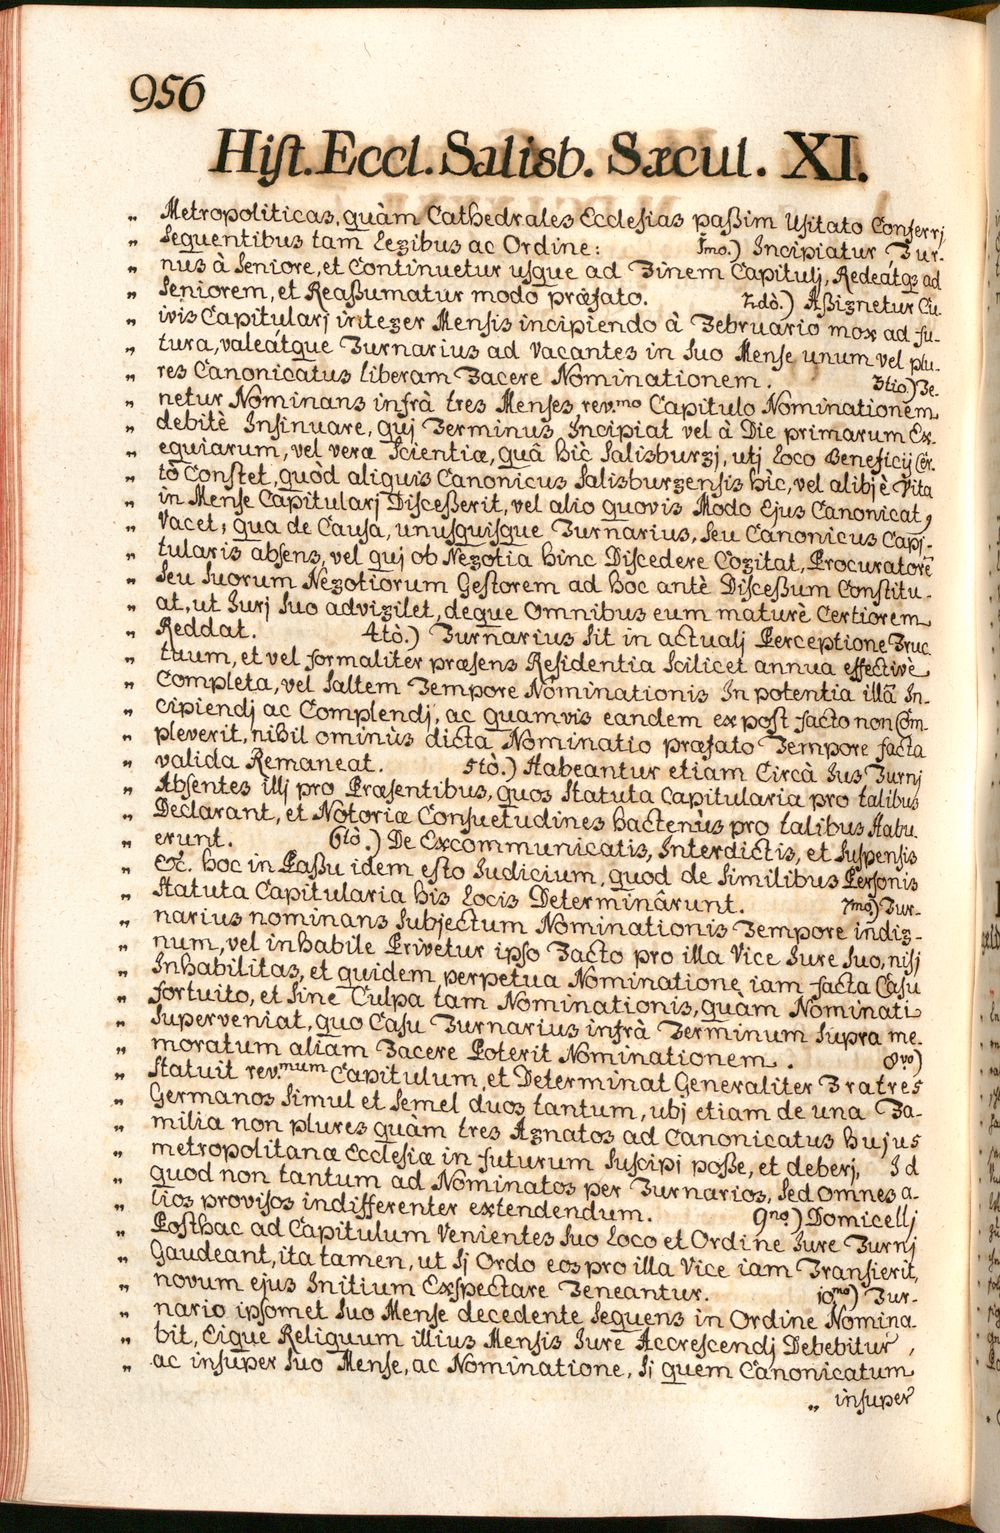 956
Hist. Eccl. Salisb. Sæcul. XI.
„ Metropoliticas, quàm Cathedrales Ecclesias paßim Usitato Conferrj
„ Sequentibus tam Legibus ac Ordine: Imo.) Incipiatur Tur-
„ nus à Seniore, et Continuetur usque ad Finem Capitulj, Redeatqz ad
„ Seniorem, et Reaßumatur modo præfato. 2dò.) Aßignetur Cu-
„ ivis Capitularj integer Mensis incipiendo à Februario mox ad fu-
„ tura, valeátque Turnarius ad Vacantes in suo Mense unum vel plu-
„ res Canonicatus liberam Facere Nominationem. 3tio.) Te-
„ netur Nominans infrà tres Menses rev.mo Capitulo Nominationem
„ debitè Insinuare, quj Terminus Incipiat vel à Die primarum Ex-
„ equiarum, vel veræ Scientiæ, quâ hîc Salisburgj, utj Loco Beneficij Cer-
„ tò Constet, quòd aliquis Canonicus Salisburgensis hîc, vel alibj è Vita
„ in Mense Capitularj Disceßerit, vel alio quovis Modo Ejus Canonicat,
„ Vacet; qua de Causa, unusquisque Turnarius, seu Canonicus Capi-
„ tularis absens, vel quj ob Negotia hinc Discedere Cogitat, Procuratorē
„ seu suorum Negotiorum Gestorem ad hoc antè Disceßum Constitu-
„ at, ut Jurj suo advigilet, deque Omnibus eum maturè Certiorem
„ Reddat. 4tò.) Turnarius sit in actualj Perceptione Fruc-
„ tuum, et vel formaliter præsens Residentia scilicet annua effectivè
„ Completa, vel saltem Tempore Nominationis In potentia illā In-
„ cipiendj ac Complendj, ac quamvis eandem ex post facto non Com-
„ pleverit, nihil ominùs dicta Nominatio præfato Tempore facta
„ valida Remaneat. 5tò.) Habeantur etiam Circà Jus Turnj
„ Absentes illj pro Præsentibus, quos Statuta Capitularia pro talibus
„ Declarant, et Notoriæ Consuetudines hactenùs pro talibus Habu-
„ erunt. 6tò.) De Excommunicatis, Interdictis, et Suspensis
„ &c. hoc in Paßu idem esto Judicium, quod de Similibus Personis
„ Statuta Capitularia his Locis Determinârunt. 7mò.) Tur-
„ narius nominans Subjectum Nominationis Tempore indig-
„ num, vel inhabile Privetur ipso Facto pro illa Vice Jure suo, nisj
„ Inhabilitas, et quidem perpetua Nominatione iam facta Casu
„ fortuito, et Sine Culpa tam Nominationis, quàm Nominati
„ Superveniat, quo Casu Turnarius infrà Terminum supra me-
„ moratum aliam Facere Poterit Nominationem. 8vo)
„ Statuit rev.mum Capitulum et Determinat Generaliter Fratres
„ Germanos simul et semel duos tantum, ubj etiam de una Fa-
„ milia non plures quàm tres Agnatos ad Canonicatus hujus
„ metropolitanæ Ecclesiæ in futurum suscipi poße, et deberj, Id
„ quod non tantum ad Nominatos per Turnarios, sed omnes a-
„ lios provisos indifferenter extendendum. 9no.) Domicellj
„ Posthac ad Capitulum Venientes suo Loco et Ordine Jure Turnj
„ Gaudeant, ita tamen, ut Sj Ordo eos pro illa Vice iam Transierit,
„ novum ejus Initium Exspectare Teneantur. 10mo) Tur-
„ nario ipsomet suo Mense decedente Sequens in Ordine Nomina-
„ bit, Eique Reliquum illius Mensis Jure Accrescendj Debebitur,
„ ac insuper suo Mense, ac Nominatione, Si quem Canonicatum
„ insuper